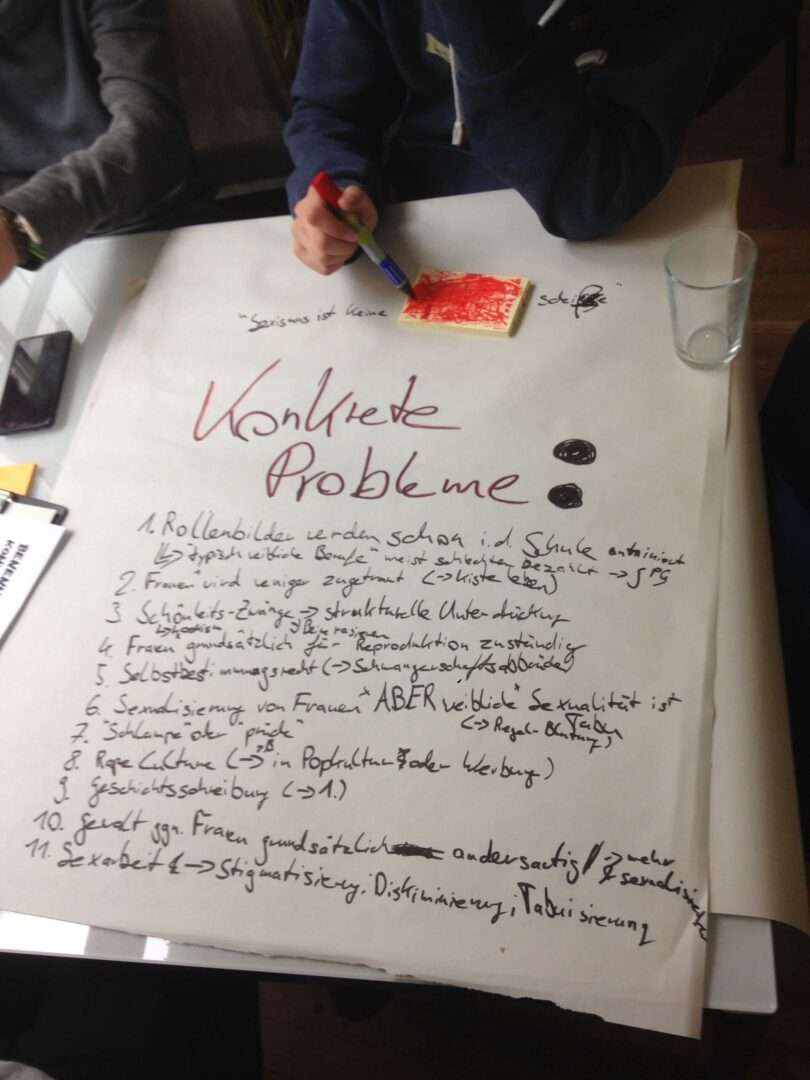 "Sexismus ist keine
Konkrete
Probleme:
1. Rollenbilder werden schon i.d. Schule antrainiert
↳ "typisch weibliche Berufe" meist schlechter bezahlt →
2. Frauen wird weniger zugetraut (→
3. Schönheits-Zwänge → strukturelle Unterdrückung
↳ z.B. Beine rasieren
4. Frauen grundsätzlich für Reproduktion zuständig
5. Selbstbestimmungsrecht (→ Schwangerschaftsabbrüche)
6. Sexualisierung von Frauen ABER "weibliche" Sexualität ist
Tabu
(→ Regel-Blutung)
7. "Schlampe" oder "prüde"
8. Rape Culture (→ z.B. in Popkultur oder Werbung)
9. Geschichtsschreibung (→ 1.)
10. Gewalt ggn. Frauen grundsätzlich andersartig → mehr
sexualisierte
11. Sexarbeit → Stigmatisierung, Diskriminierung, Tabuisierung